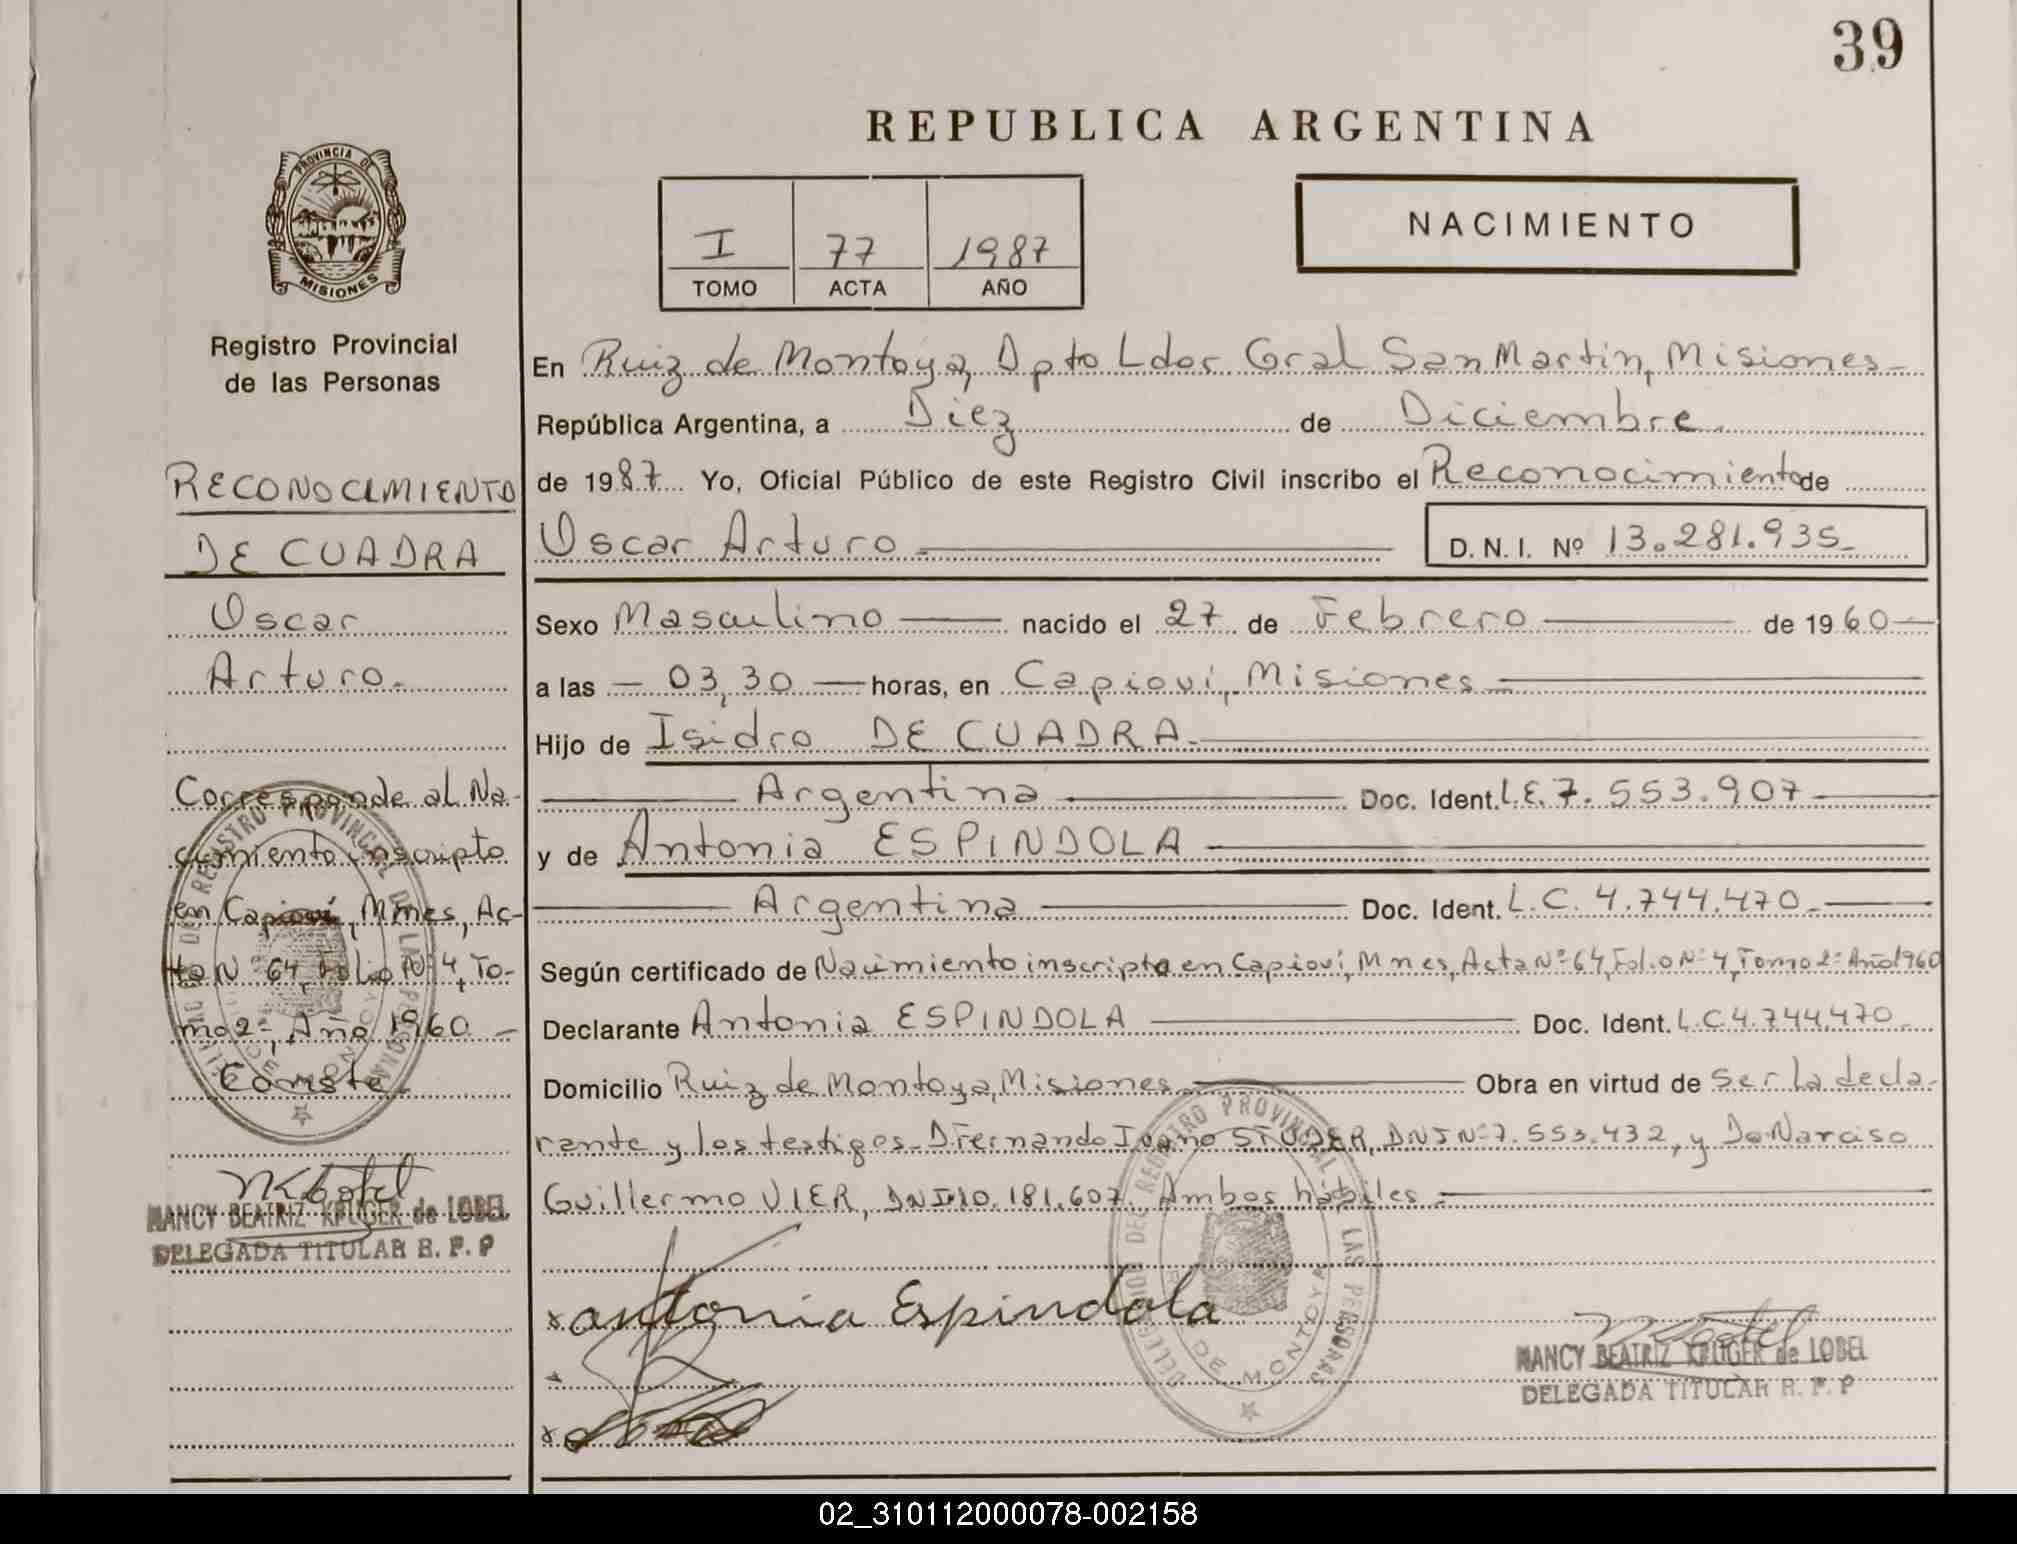 39
REPUBLICA ARGENTINA
PROVINCIA DE
MISIONES
Registro Provincial
de las Personas
RECONOCIMIENTO
DE CUADRA
Oscar
Arturo.
Corresponde al Na-
cimiento inscripto
en Capioví, Mnes, Ac-
ta Nº 64, Folio Nº 4, To-
mo 2º, Año 1960
Conste.
NANCY BEATRIZ KRUGER de LOBEL
DELEGADA TITULAR R. P. P
I 77 1987
TOMO ACTA AÑO
NACIMIENTO
En Ruiz de Montoya, Dpto Ldor Gral San Martin, Misiones
República Argentina, a Diez de Diciembre.
de 1987 Yo, Oficial Público de este Registro Civil inscribo el Reconocimiento de
Oscar Arturo D. N. I. Nº 13.281.935
Sexo Masculino nacido el 27 de Febrero de 1960
a las 03,30 horas, en Capioví, Misiones
Hijo de Isidro DE CUADRA
Argentina Doc. Ident. L.E. 7.553.907
y de Antonia ESPINDOLA
Argentina Doc. Ident. L.C. 4.744.470
Según certificado de Nacimiento inscripto en Capioví, Mnes, Acta Nº 64, Folio Nº 4, Tomo 2º Año 1960
Declarante Antonia ESPINDOLA Doc. Ident. L.C 4.744.470
Domicilio Ruiz de Montoya, Misiones Obra en virtud de Ser la decla-
rante y los testigos D Fernando STUDER, DNI Nº 7.553.432, y Dn Narciso
Guillermo VIER, DNI 10.181.607. Ambos hábiles
x antonia Espindola
x
DELEGACION DEL REGISTRO PROVINCIAL DE LAS PERSONAS
DE MONTOYA
NANCY BEATRIZ KRUGER de LOBEL
DELEGADA TITULAR R. P. P
02_310112000078-002158